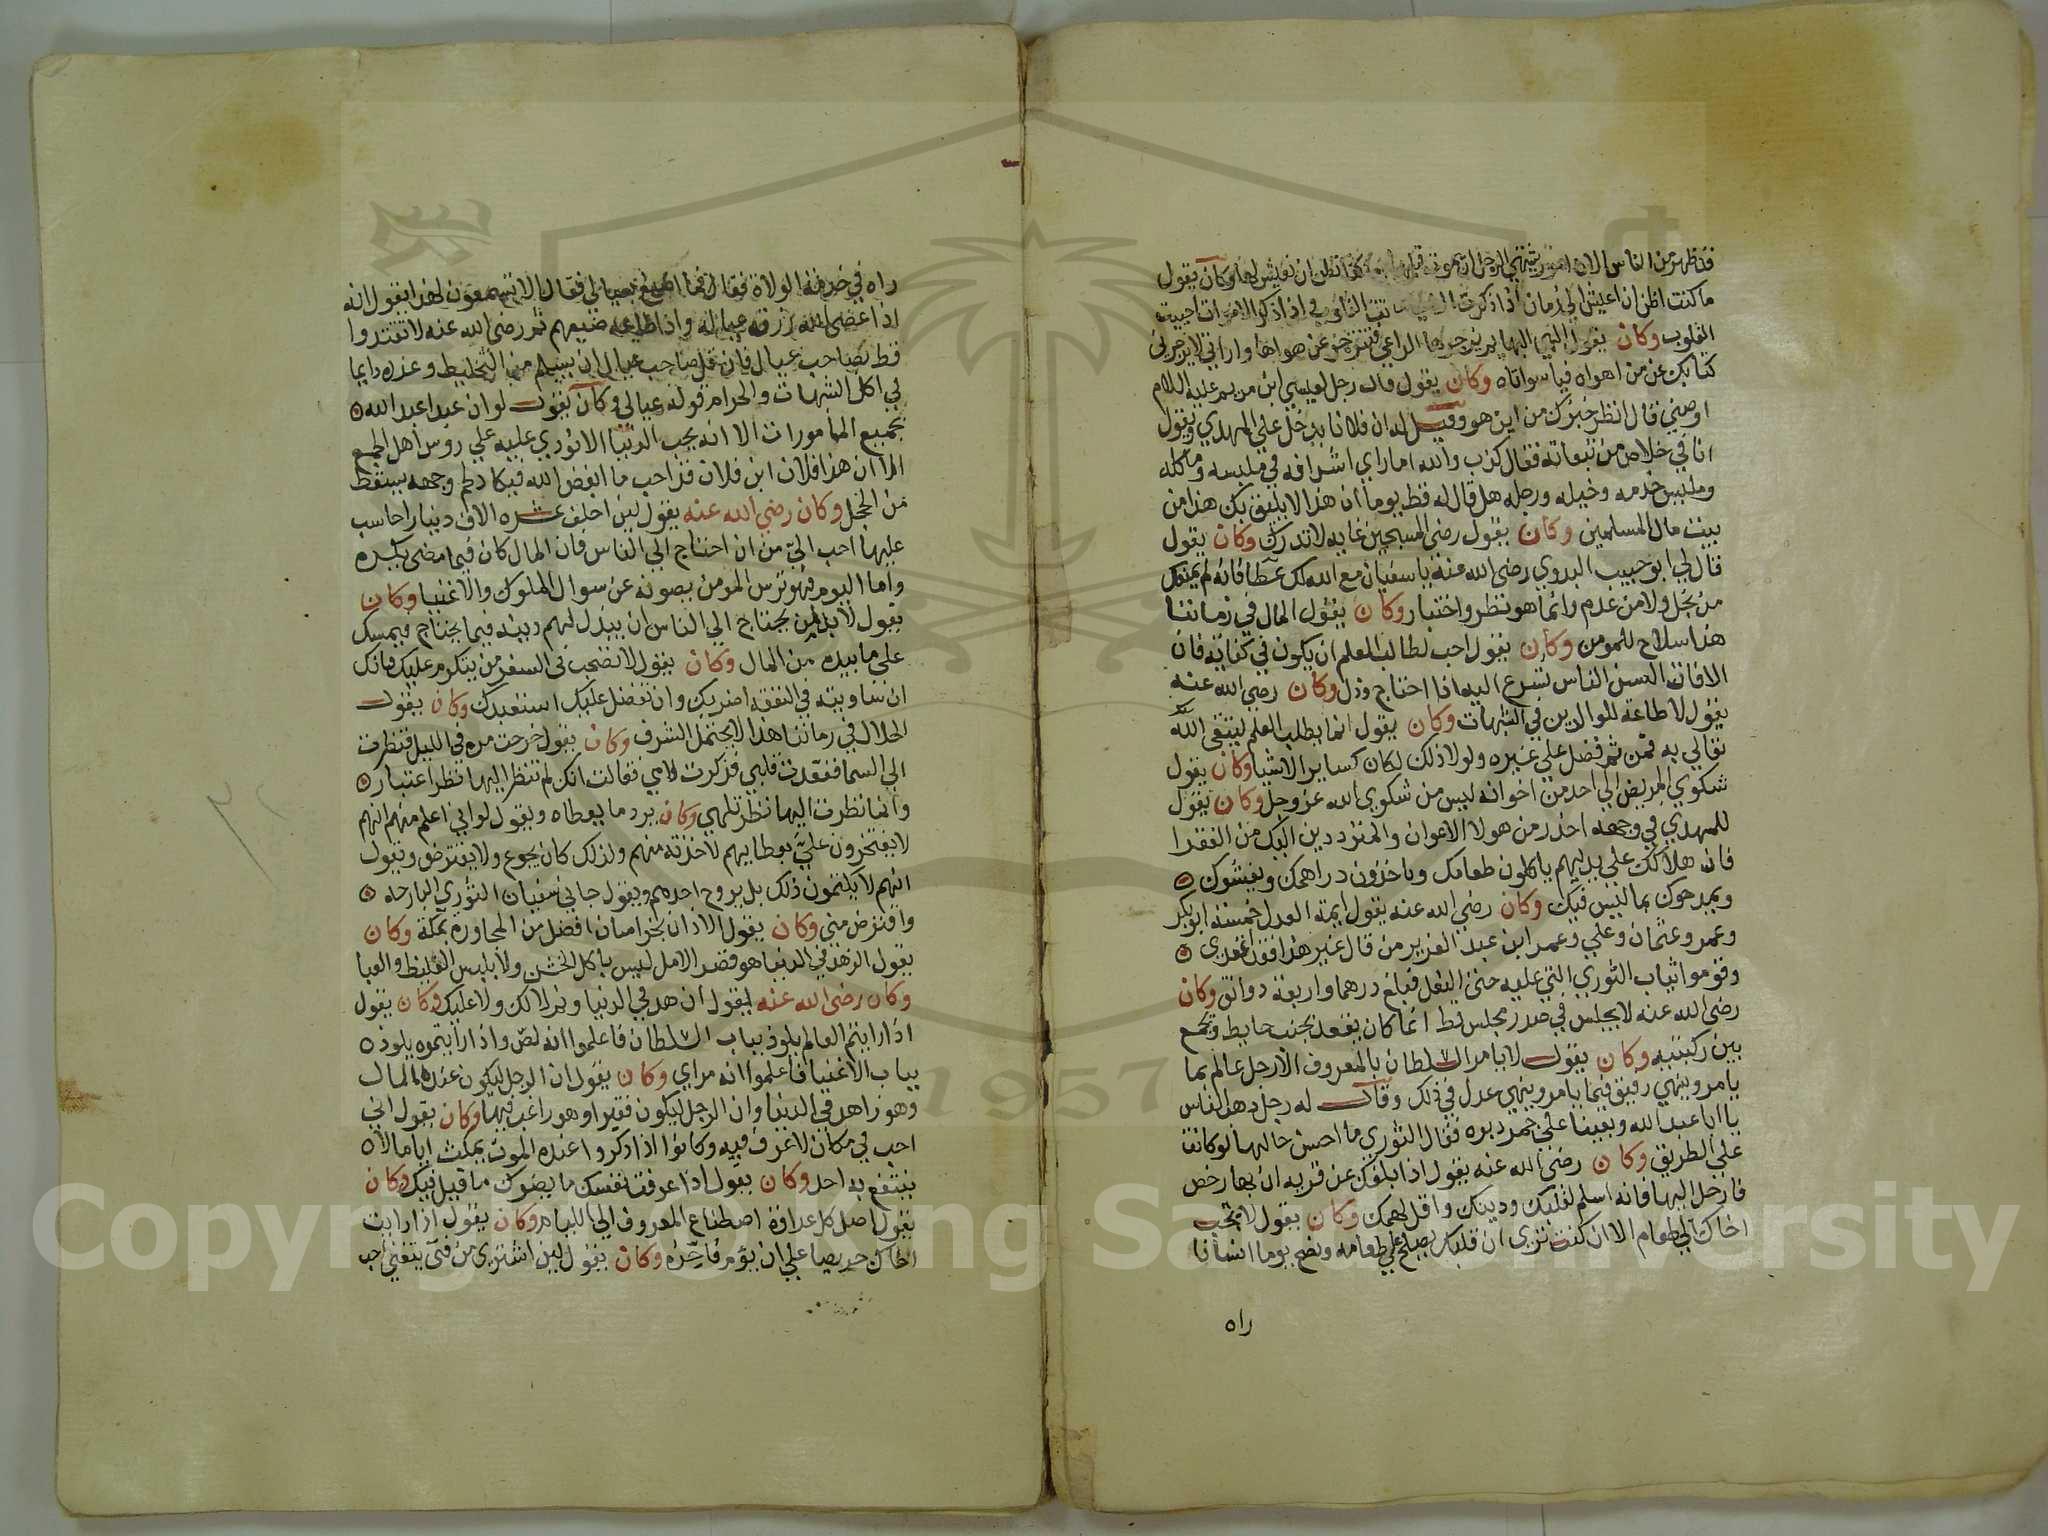 فقد ظهر من الناس الان امور يشتهي الرجل ان يموت قبلها وما كنا نظن ان نعيش لها وكان يقول
ما كنت اظن ان اعيش الي زمان اذا ذكرت الاحيا ماتت القلوب واذا ذكر الاموات حييت
القلوب وكان يقول
كتابك عن من اهواه فيما سواتاه وكان يقول قال رجل لعيسي ابن مريم عليه السلام
اوصني قال انظر خبزك من اين هو وقيل له ان فلانا يدخل علي المهدي ويقول
انا في خلاص من تبعاته فقال كذب والله اما راي اسرافه في ملبسه وماكله
وملبس خدمه وخيله ورجله هل قال له قط يوما ان هذا لا يليق بك هذا من
بيت مال المسلمين وكان يقول رضي المسبحين غايه لا تدرك وكان يقول
قال لي ابو حبيب البدوي رضي الله عنه يا سفيان منع الله لك عطا فانه لم يمنعك
من بخل ولا من عدم وانما هو نظر واختبار وكان يقول المال في زماننا
هذا سلاح للمومن وكان يقول احب لطالب العلم ان يكون في كفايه فان
الافات السن الناس تسرع اليه اذا احتاج وذل وكان رضي الله عنه
يقول لا طاعة للوالدين في الشبهات وكان يقول انما يطلب العلم ليتقي الله
تعالي به فمن ثم فضل علي غيره ولولا ذلك لكان كساير الاشيا وكان يقول
شكوي المريض الي احد من اخوانه ليس من شكوي الله عز وجل وكان يقول
للمهدي في وجهه احذر من هولا الاعوان والمترددين اليك من الفقرا
فان هلاكك علي يديهم ياكلون طعامك وياخذون دراهمك ويغشوك
ويمدحوك بما ليس فيك وكان رضي الله عنه يقول ايمة العدل خمسة ابو بكر
وعمر وعثمان وعلي وعمر ابن عبد العزيز من قال غير هذا فقد اعتدي
وقوموا ثياب الثوري التي عليه حتي النعل فبلغ درهما واربعة دوانق وكان
رضي الله عنه لا يجلس في صدر مجلس قط انما كان يقعد بجنب حايط ويجمع
بين ركبتيه وكان يقول لا يامر السلطان بالمعروف الا رجل عالم بما
يامر وينهي رفيق فيما يامر وينهي عدل في ذلك وقال له رجل ذهب الناس
يا ابا عبد الله وبقينا علي حمر دبره فقال الثوري ما احسن حالها لو كانت
علي الطريق وكان رضي الله عنه يقول اذا بلغك عن قريه ان بها رخص
فارحل اليها فانه اسلم لقلبك ودينك واقل لهمك وكان يقول لا تجب
اخاك الي طعام الا ان كنت تري ان قلبك يصلح علي طعامه ونصح يوما انسانا
راه
راه في خدمة الولاة فقال فما اصنع بعيالي فقال الا تسمعون لهذا يقول انه
اذا عصي الله رزقه عياله واذا اطاعه ضيعهم ثم رضي الله عنه لا تقتدوا
قط بصاحب عيال فان قل صاحب عيال ان يسلم من التخليط وعذره دايما
في اكل الشبهات والحرام قوله عيالي وكان يقول لو ان عبدا عبد الله
بجميع المامورات الا انه يحب الدنيا الا نودي عليه علي روس اهل الجمع
الا ان هذا فلان ابن فلان قد احب ما ابغض الله فيكاد لحم وجهه يسقط
من الخجل وكان رضي الله عنه يقول لين اخلف عشره الاف دينار احاسب
عليها احب الي من ان احتاج الي الناس فان المال كان فيما مضي يكره
واما اليوم فهو ترس المومن يصونه عن سوال الملوك والاغنيا وكان
يقول لا بد لمن يحتاج الي الناس ان يبذل لهم دينه فيما يحتاج فيمسك
علي ما بيده من المال وكان يقول لا تصحب في السفر من يتكرم عليك فانك
ان ساويته في النفقه اضربك وان تفضل عليك استعبدك وكان يقول
الحلال في زماننا هذا لا يحتمل السرف وكان يقول خرجت مره في الليل فنظرت
الي السما ففقدت قلبي فذكرت لامي فقالت انك لم تنظر اليها نظر اعتبار
وانما نظرت اليها نظر تلهي وكان يرد ما يعطاه ويقول لو اني اعلم منهم انهم
لا يفتخرون علي بعطايهم لاخذته منهم ولذلك كان يجوع ولا يقترض ويقول
انهم لا يكتمون ذلك بل يروح احدهم ويقول جاني سفيان الثوري البارحه
واقترض مني وكان يقول الاذان بخراسان افضل من المجاوره بمكة وكان
يقول الزهد في الدنيا هو قصر الامل ليس باكل الخشن ولا بلبس الغليظ والعبا
وكان رضي الله عنه يقول ازهد في الدنيا ونم لا لك ولا عليك وكان يقول
اذا رايتم العالم يلوذ بباب السلطان فاعلموا انه لص واذا رايتموه يلوذ
بباب الاغنيا فاعلموا انه مراي وكان يقول ان الرجل ليكون عنده المال
وهو زاهد في الدنيا وان الرجل ليكون فقيرا وهو راغب فيها وكان يقول اني
احب في مكان لا اعرف فيه وكانوا اذا ذكروا عنده الموت يمكث اياما لا
ينتفع به احد وكان يقول اذا عرفت نفسك ما يضرك ما قيل فيك وكان
يقول اصل كل عداوة اصطناع المعروف الي الليام وكان يقول اذا رايت
اخاك حريصا علي ان يؤم فاخره وكان يقول لين اشتري من فتي يتغني احب
Copyright © King Saud University
1957